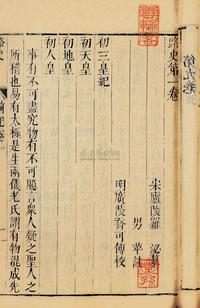 路史第一卷
宋廬陵羅 泌纂
男 苹註
明廣陵喬可傳校
初三皇紀
初天皇
初地皇
初人皇
事有不可盡究物有不可臆言眾人疑之聖人之
所稽也易有太極是生兩儀老氏謂有物混成先
路史